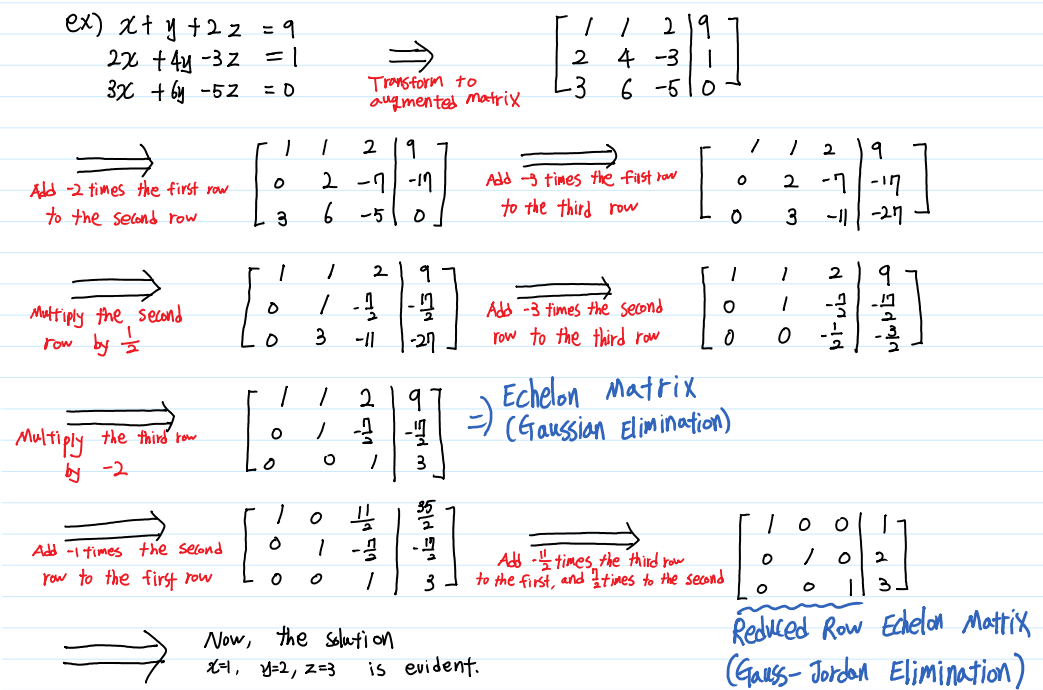 ex) x + y + 2z = 9
2x + 4y - 3z = 1
3x + 6y - 5z = 0
⇒
Transform to
augmented matrix
[ 1 1 2 | 9 ]
[ 2 4 -3 | 1 ]
[ 3 6 -5 | 0 ]
⇒
Add -2 times the first row
to the second row
[ 1 1 2 | 9 ]
[ 0 2 -7 | -17 ]
[ 3 6 -5 | 0 ]
⇒
Add -3 times the first row
to the third row
[ 1 1 2 | 9 ]
[ 0 2 -7 | -17 ]
[ 0 3 -11 | -27 ]
⇒
Multiply the second
row by 1/2
[ 1 1 2 | 9 ]
[ 0 1 -7/2 | -17/2 ]
[ 0 3 -11 | -27 ]
⇒
Add -3 times the second
row to the third row
[ 1 1 2 | 9 ]
[ 0 1 -7/2 | -17/2 ]
[ 0 0 -1/2 | -3/2 ]
⇒
Multiply the third row
by -2
[ 1 1 2 | 9 ]
[ 0 1 -7/2 | -17/2 ]
[ 0 0 1 | 3 ]
⇒ Echelon Matrix
(Gaussian Elimination)
⇒
Add -1 times the second
row to the first row
[ 1 0 11/2 | 35/2 ]
[ 0 1 -7/2 | -17/2 ]
[ 0 0 1 | 3 ]
⇒
Add -11/2 times the third row
to the first, and 7/2 times to the second
[ 1 0 0 | 1 ]
[ 0 1 0 | 2 ]
[ 0 0 1 | 3 ]
Reduced Row Echelon Matrix
(Gauss-Jordan Elimination)
⇒
Now, the solution
x=1, y=2, z=3 is evident.